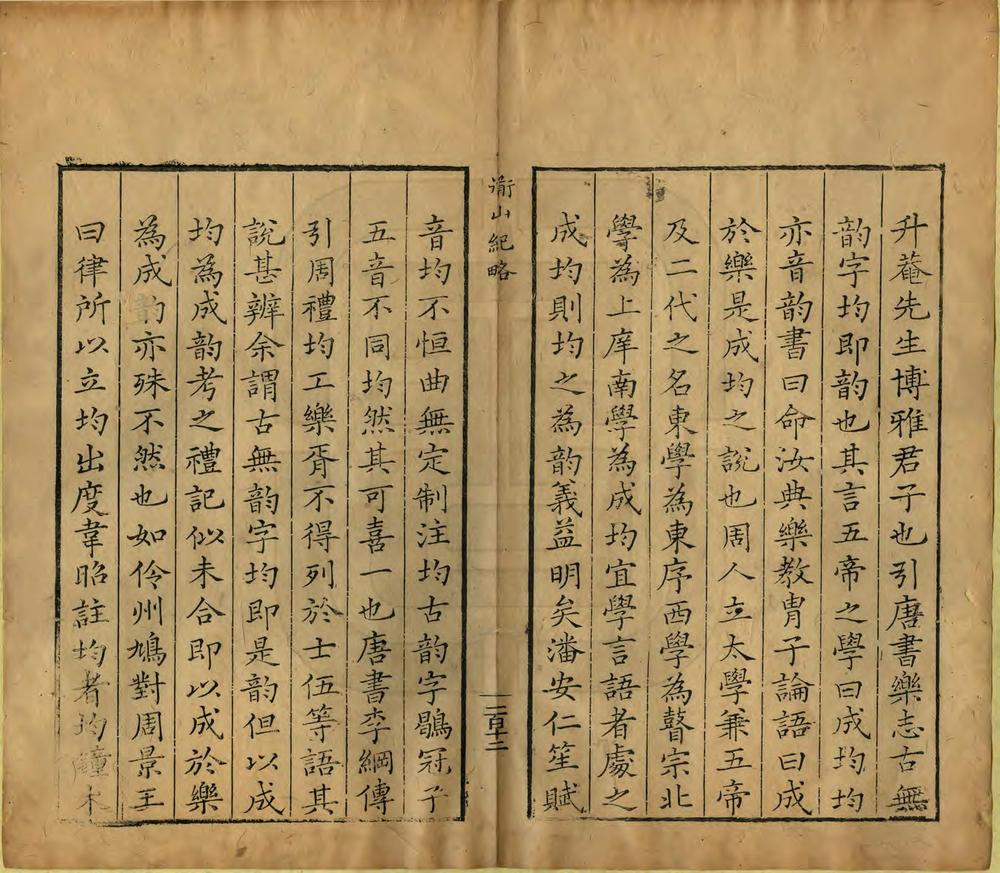 升菴先生博雅君子也引唐書樂志古無
韵字均即韵也其言五帝之學曰成均均
亦音韵書曰命汝典樂教胄子論語曰成
於樂是成均之說也周人立太學兼五帝
及二代之名東學為東序西學為瞽宗北
學為上庠南學為成均宜學言語者處之
成均則均之為韵義益明矣潘安仁笙賦
衡山紀略
二百十二
音均不恒曲無定制注均古韵字鶡冠子
五音不同均然其可喜一也唐書李綱傳
引周禮均工樂胥不得列於士伍等語其
說甚辨余謂古無韵字均即是韵但以成
均為成韵考之禮記似未合即以成於樂
為成韵亦殊不然也如伶州鳩對周景王
曰律所以立均出度韋昭註均者均鐘木